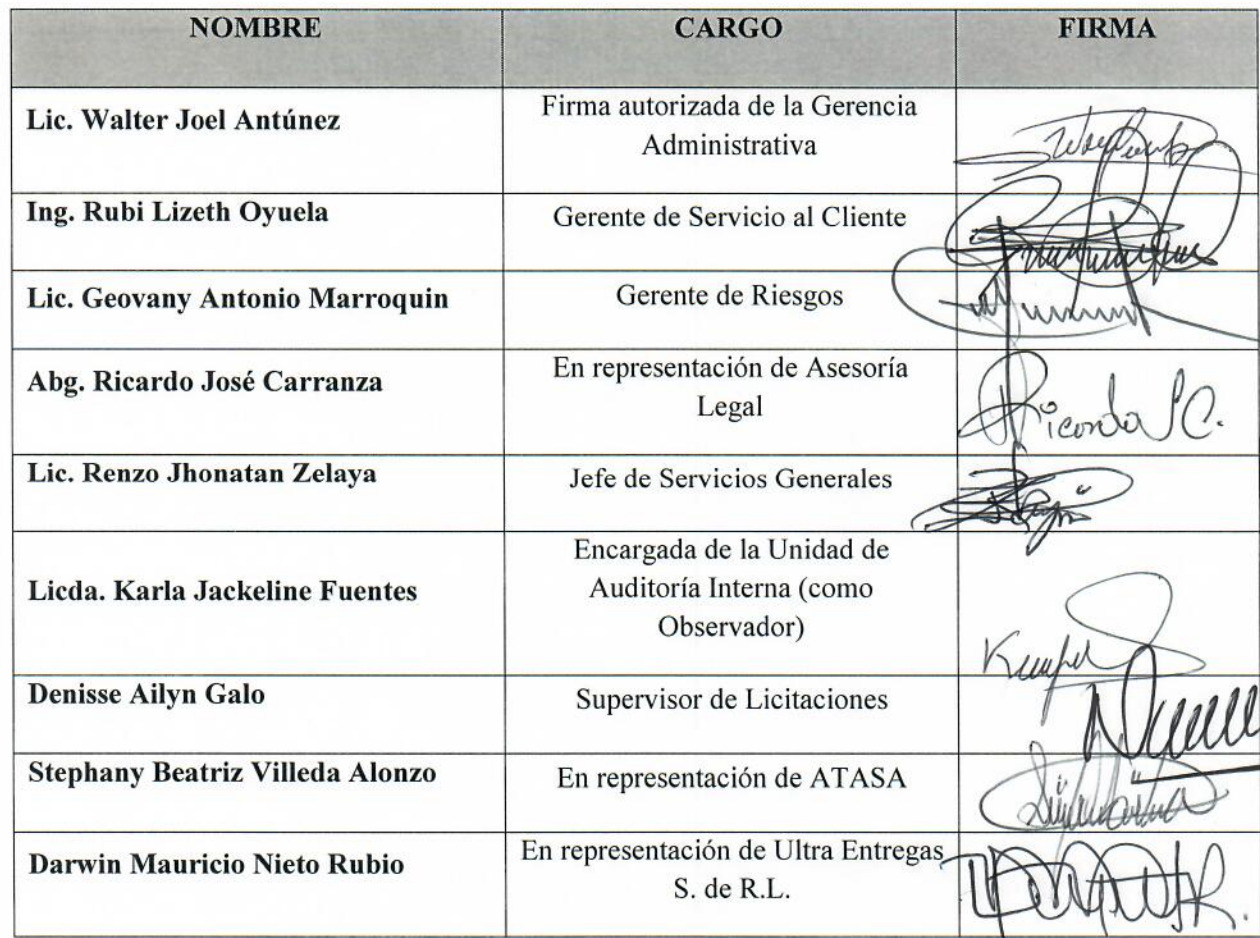 NOMBRE CARGO FIRMA
Lic. Walter Joel Antúnez
Firma autorizada de la Gerencia
Administrativa
Ing. Rubi Lizeth Oyuela
Gerente de Servicio al Cliente
Lic. Geovany Antonio Marroquin
Gerente de Riesgos
Abg. Ricardo José Carranza
En representación de Asesoría
Legal
Ricardo J C.
Lic. Renzo Jhonatan Zelaya
Jefe de Servicios Generales
Licda. Karla Jackeline Fuentes
Encargada de la Unidad de
Auditoría Interna (como
Observador)
Denisse Ailyn Galo
Supervisor de Licitaciones
Stephany Beatriz Villeda Alonzo
En representación de ATASA
Darwin Mauricio Nieto Rubio
En representación de Ultra Entregas
S. de R.L.